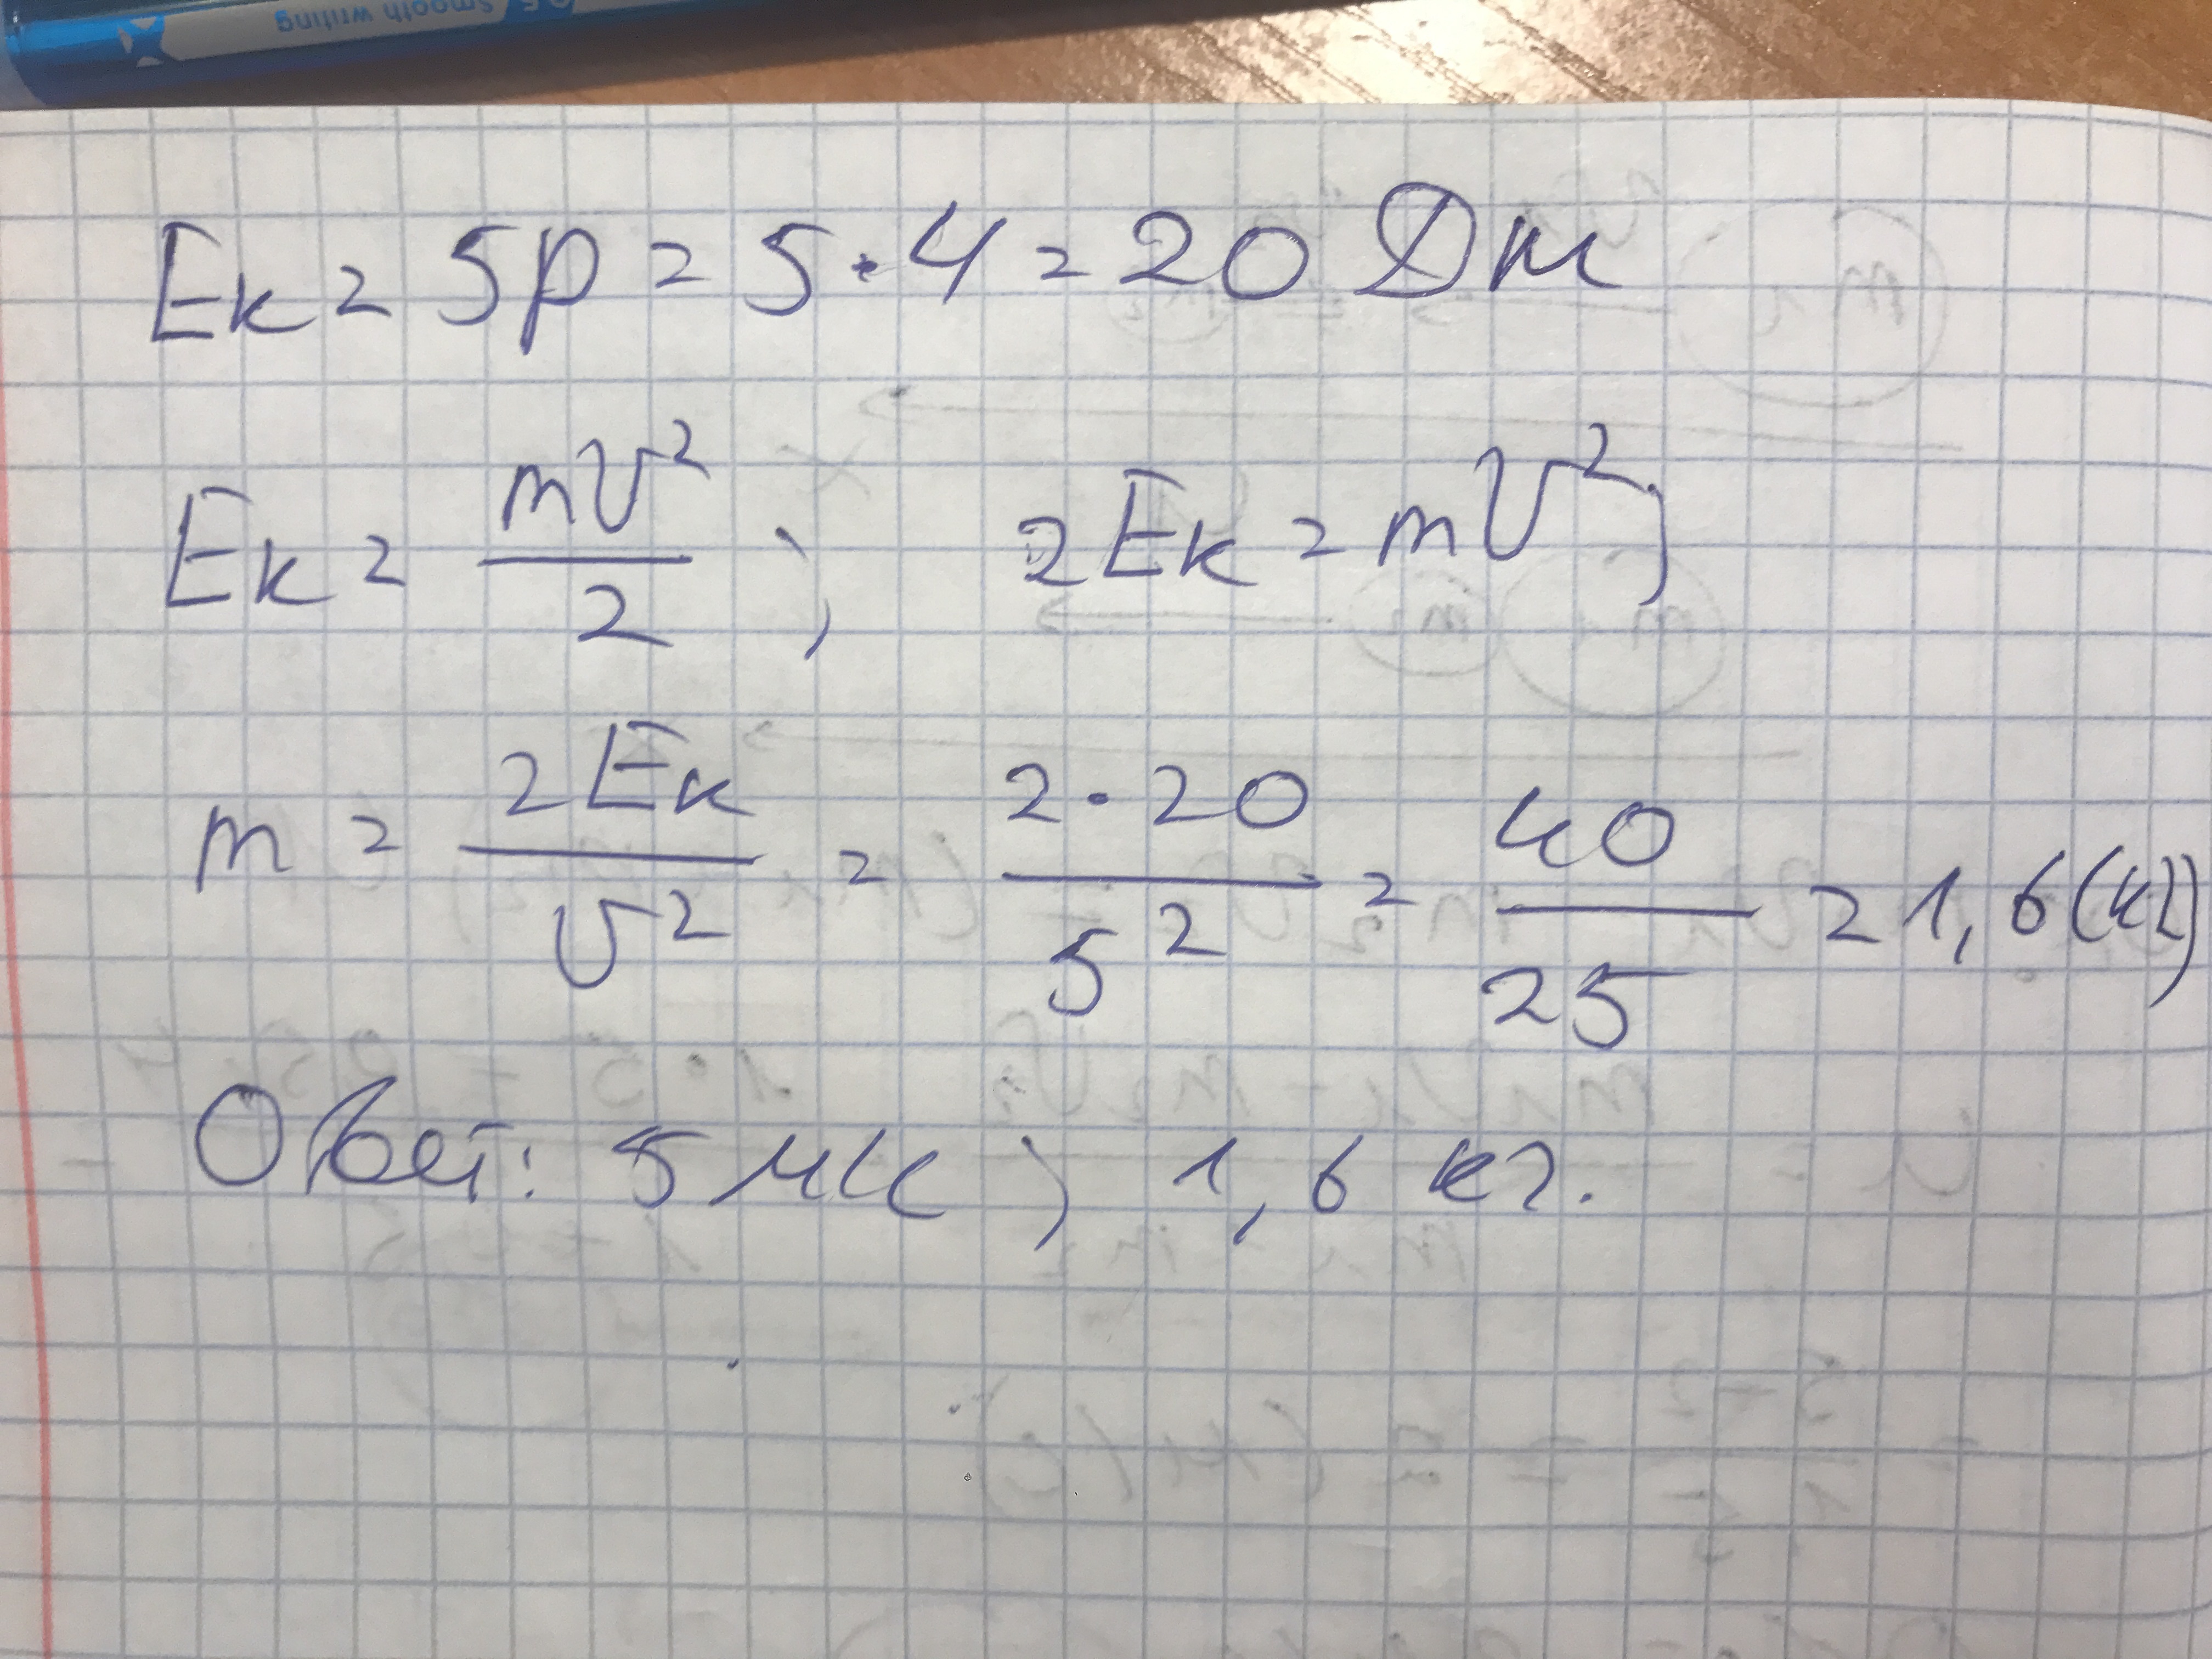 Smooth writing
Eк = 5p = 5·4 = 20 Дж
Eк = mV²/2 ; 2Eк = mV² ;
m = 2Eк/V² = 2·20/5² = 40/25 = 1,6 (кг)
Ответ: 5 м/с ; 1,6 кг.